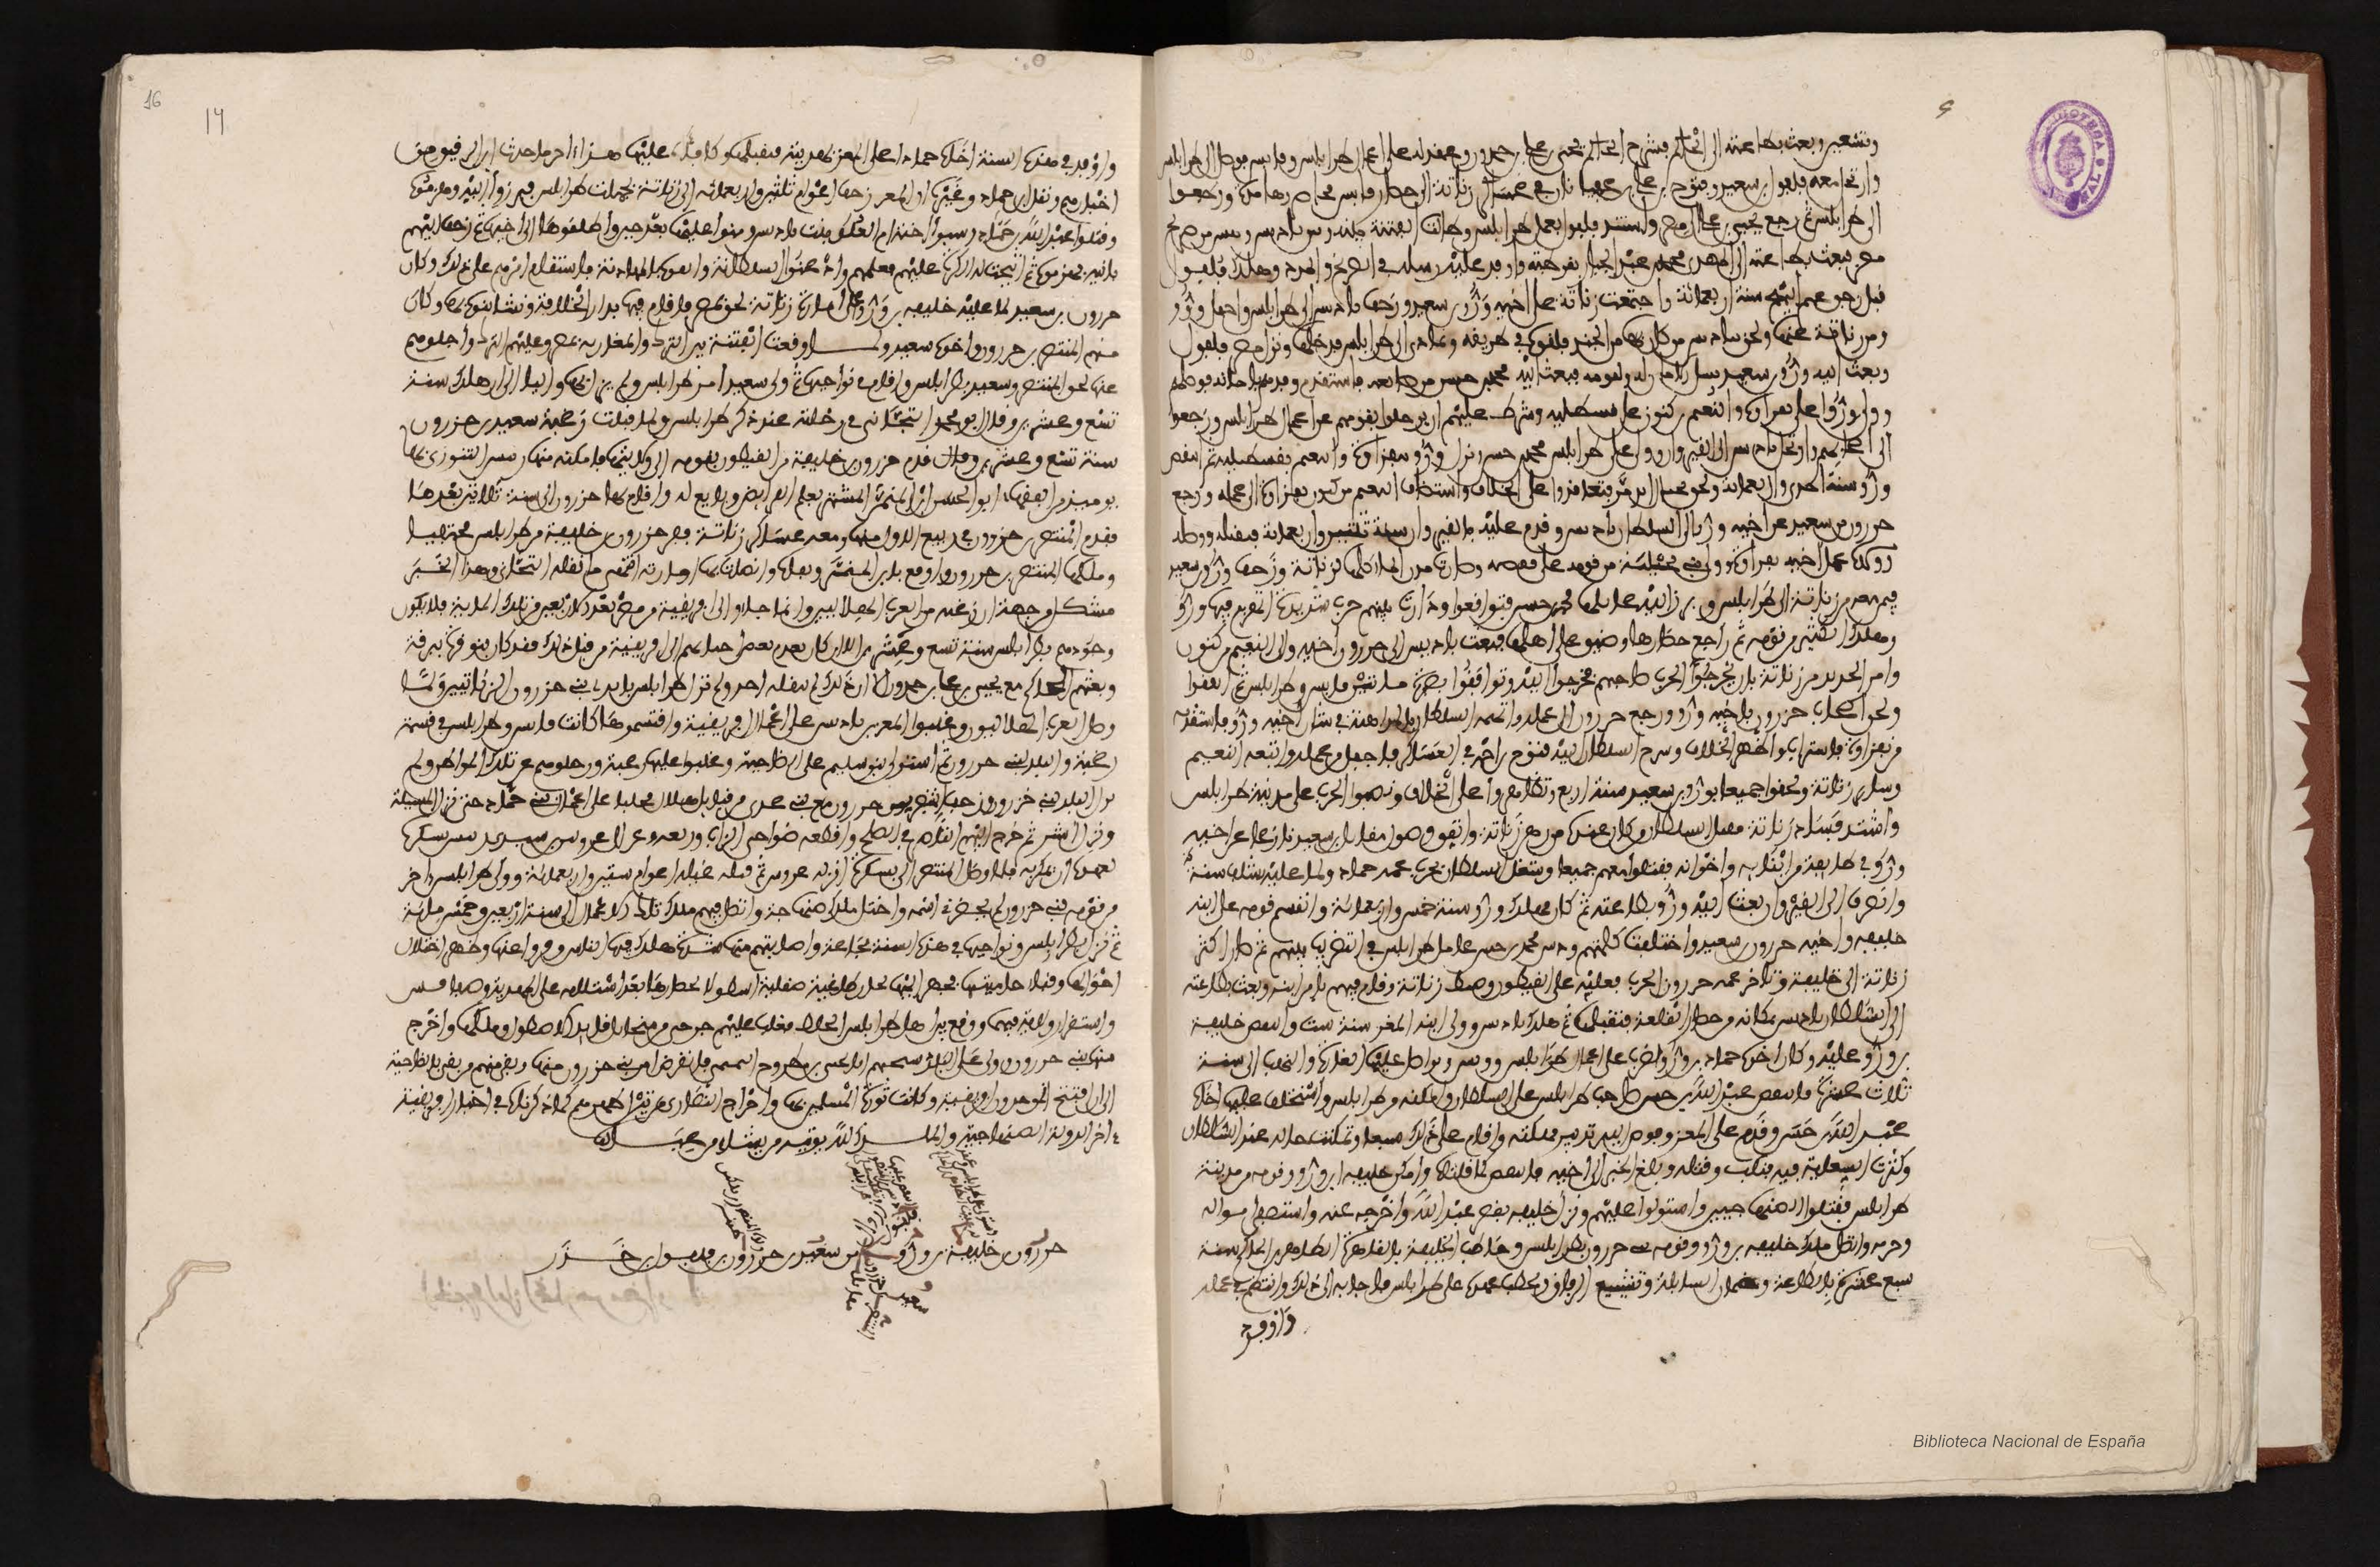 وتسعين وبعث بطاعته الى الحاكم فسرح الحاكم يحيى بن علي بن حمدون وعقد له على اعمال طرابلس وقابس فوصل الى طرابلس
وارتحل معه فلفول بن سعيد وفتوح بن علي بن في عساكر زناتة الى حصار قابس فحاصروها مدة ورجعوا
الى طرابلس ثم رجع يحيى بن علي الى مصر واستبد فلفول بعمل طرابلس وطالت الفتنة بينه وبين باديس ويئس من صريخ
مصر فبعث بطاعته الى المهدي محمد بن عبد الجبار بقرطبة واوفد عليه رسله في الصريخ والمدد وهلك فلفول
قبل رجوعهم اليه سنة اربعمائة واجتمعت زناتة على اخيه ورو بن سعيد وزحف باديس الى طرابلس واجفل ورو
ومن زناتة عنها ولحق بباديس من كان بها من الجند فلقوه في طريقه وتمادى الى طرابلس فدخلها ونزل قصر فلفول
وبعث اليه ورو بن سعيد يسال الامان له ولقومه فبعث اليه محمد بن حسن من صنائعه فاستقدم وفدهم بامانه فوصلهم
وولى ورو على نفزاوة والنعيم بن كنون على قسطيلية وشرط عليهم ان يرحلوا بقومهم عن اعمال طرابلس ورجعوا
الى اصحابهم وارتحل باديس الى القيروان وولى على طرابلس محمد بن حسن ونزل ورو بنفزاوة والنعيم بقسطيلية ثم انتقض
ورو سنة احدى واربعمائة ولحق بجبال ايدمر فتعاقدوا على الخلاف واستضاف النعيم بن كنون نفزاوة الى عمله ورجع
خزرون بن سعيد عن اخيه ورو الى السلطان باديس وقدم عليه بالقيروان سنة ثنتين واربعمائة فتقبله ووصله
وولاه عمل اخيه نفزاوة وولى بني مجلية من قومه على قفصة وصارت مدن الماء كلها لزناتة وزحف ورو بن سعيد
فيمن معه من زناتة الى طرابلس وبرز اليه عاملها محمد بن حسن فتواقعوا ودارت بينهم حرب شديدة انهزم فيها ورو
وهلك الكثير من قومه ثم راجع حصارها وضيق على اهلها فبعث باديس الى خزرون اخيه والى النعيم بن كنون
وامراء الجريد من زناتة بان يخرجوا لحرب صاحبهم فخرجوا اليه وتواقفوا بصبرة ما بين قابس وطرابلس ثم اتفقوا
ولحق اصحاب خزرون باخيه ورو ورجع خزرون الى عمله واتهمه السلطان بالمداهنة في شان اخيه ورو فاستقدمه
من نفزاوة فاستراب واظهر الخلاف وسرح السلطان اليه فتوح بن احمد في العساكر فاجفل عن عمله واتبعه النعيم
وسائر زناتة ولحقوا جميعا بورو بن سعيد سنة اربع وتظاهروا على الخلاف ونصبوا الحرب على مدينة طرابلس
واشتد فساد زناتة فقتل السلطان من كان عنده من رهن زناتة واتفق وصول مقاتل بن سعيد نازعا عن اخيه
ورو في طائفة من ابنائه واخوانه فقتلوا معهم جميعا وشغل السلطان بحرب عمه حماد ولما غلبه بشلف سنة
وانصرف الى القيروان بعث اليه ورو بطاعته ثم كان مهلك ورو سنة خمس واربعمائة وانقسم قومه على ابنه
خليفة واخيه خزرون بن سعيد واختلفت كلمتهم ودس محمد بن حسن عامل طرابلس في التضريب بينهم ثم صار اكثر
زناتة الى خليفة وناجز عمه خزرون الحرب فغلبه على القيطون وضبط زناتة وقام فيهم بامر ابيه وبعث بطاعته
الى السلطان باديس بمكانه من حصار القلعة فتقبلها ثم هلك باديس وولي ابنه المعز سنة ست وانتقض خليفة
بن ورو عليه وكان اخوه حماد بن ورو يضرب على اعمال طرابلس وقابس ويواصل عليها الغارة والنهب الى سنة
ثلاث عشرة فانتقض عبد الله بن حسن صاحب طرابلس على السلطان وامكنه من طرابلس واستخلف عليها اخاه
عبد الله بن حسن وقدم على المعز وفوض اليه تدبير مملكته واقام على ذلك سبعا وتمكنت حاله عند السلطان
وكثرت السعاية فيه فنكبه وقتله وبلغ الخبر الى اخيه فانتقض كما قلناه وامكن خليفة بن ورو وقومه من مدينة
طرابلس فقتلوا الصنهاجيين واستولوا عليهم ونزل خليفة بقصر عبد الله واخرجه عنه واستصفى امواله
وحرمه واتصل ملك خليفة بن ورو وقومه بني خزرون بطرابلس وخاطب الخليفة بالقاهرة الظاهر بن الحاكم سنة
سبع عشرة بالطاعة وضمان السابلة وتشييع الرفاق ويخطب عهده على طرابلس فاجابه الى ذلك وانتظم في عمله
واوفد
16
14
واوفد في هذه السنة اخاه حمادا على المعز بهدية فتقبلها وكافاه عليها هذا اخر ما حدث ابن الرقيق من
اخبارهم ونقل ابن حماد وغيره ان المعز زحف اعوام ثلثين واربعمائة الى زناتة بجهات طرابلس فبرزوا اليه وهزموه
وقتلوا عبد الله بن حماد وسبوا اخته ام العلو بنت باديس ومنوا عليها بعد حين واطلقوها الى اخيها ثم زحف اليهم
ثانية فهزموه ثم اتيحت له الكرة عليهم فغلبهم واذعنوا لسلطانه واتقوه بالمهادنة فاستقام امرهم على ذلك وكان
خزرون بن سعيد لما غلبه خليفة بن ورو على امارة زناتة لحق بمصر فاقام فيها بدار الخلافة ونشا بنوه بها وكان
منهم المنتصر بن خزرون واخوه سعيد ولما وقعت الفتنة بين الترك والمغاربة بمصر وغلبهم الترك واجلوهم
عنها لحق المنتصر وسعيد بطرابلس واقاما في نواحيها ثم ولي سعيد امر طرابلس ولم يزل واليا الى ان هلك سنة
تسع وعشرين وقال ابو محمد التجاني في رحلته عند ذكر طرابلس ولما قتلت زغبة سعيد بن خزرون
سنة تسع وعشرين وقال قدم خزرون بن خليفة من القيطون بقومه الى ولايتها فامكنه منها رئيس الشورى بها
يومئذ من الفقهاء ابو الحسن ابن المنمر المشتهر بعلم الفرائض وبايع له واقام بها خزرون الى سنة ثلاثين بعدها
فقدم المنتصر بن خزرون في ربيع الاول منها ومعه عساكر زناتة ففر خزرون بن خليفة من طرابلس مختفيا
وملكها المنتصر بن خزرون واوقع بابن المنمر ونفاه واتصلت بها امارته انتهى ما نقله التجاني وهذا الخبر
مشكل من جهة ان زغبة من العرب الهلاليين وانما جاءوا الى افريقية من مصر بعد الاربعين من تلك المائة فلا يكون
وجودهم بطرابلس سنة تسع وعشرين الا ان كان تقدم بعض احيائهم الى افريقية من قبل ذلك فقد كان بنو قرة ببرقة
وبعثهم الحاكم مع يحيى بن علي بن حمدون الا ان ذلك لم ينقله احد ولم تزل طرابلس بايدي بني خزرون الزناتيين ولما
وصل العرب الهلاليون وغلبوا المعز بن باديس على اعمال افريقية واقتسموها كانت قابس وطرابلس في قسمة
زغبة والبلد لبني خزرون ثم استولى بنو سليم على الضاحية وغلبوا عليها زغبة ورحلوهم عن تلك المواطن ولم
تزل البلد لبني خزرون وزحف المنتصر بن خزرون مع بني عدي من قبائل هلال مجلبا على اعمال بني حماد حتى نزل المسيلة
ونزل اشير ثم خرج اليهم الناصر في الصلح واقطعه ضواحي الزاب وريغة واوعز الى عروس بن سندي رئيس بسكرة
لعهده ان يمكر به فلما وصل المنتصر الى بسكرة انزله عروس ثم قتله غيلة اعوام ستين واربعمائة وولي طرابلس اخر
من قومه بني خزرون لم يحضرني اسمه واختل ملك صنهاجة واتصل فيهم ملك تلك الاعمال الى سنة اربعين وخمسمائة
ثم نزل بطرابلس ونواحيها في هذه السنة مجاعة واصابتهم منها شدة هلك فيها الناس وفروا عنها وظهر اختلال
احوالها وفناء حاميتها فجهز اليها لجار طاغية صقلية اسطولا لحصارها بعد استيلائه على المهدية وصفاقس
واستقرار ولايته فيهما ووقع بين اهل طرابلس الخلاف فغلب عليهم جرجي بن ميخائيل قائد الاسطول وملكها واخرج
منها بني خزرون وولى على البلد شيخهم ابا يحيى بن مطروح التميمي فانقرض امر بني خزرون منها وبقي منهم من بقي بالضاحية
الى ان افتتح الموحدون افريقية وكانت ثورة المسلمين بها واخراج النصارى من بين اظهرهم كما ذكرناه في اخبار افريقية
اخر الدولة الصنهاجية والملك لله يوتيه من يشاء من عباده
خزرون بن خليفة بن ورو بن سعيد بن خزرون بن فلفول بن خزر
Biblioteca Nacional de España